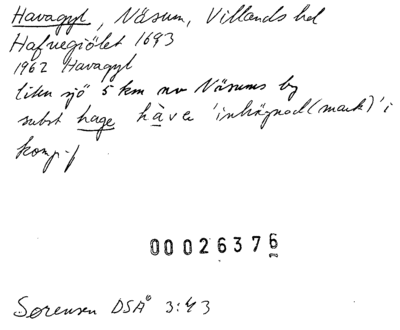 Havagyl, Näsum, Villands hd
Hafuegiölet 1693
1962 Havagyl
liten sjö 5 km nv Näsums by
subst hage hàva 'inhägnad (mark)' i
komp.f
00026376
Sørensen DSÅ 3:43